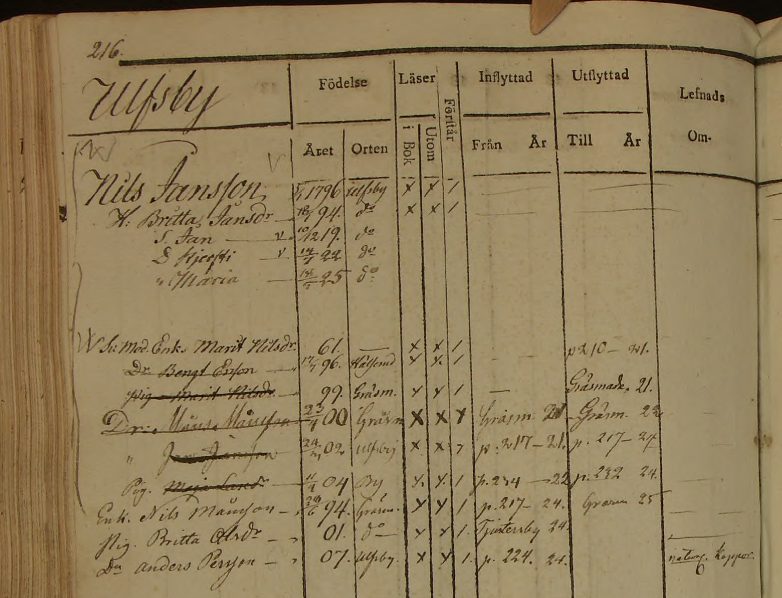 216.
Ulfsby
Födelse Läser Förstår Inflyttad Utflyttad Lefnads
Året Orten i Bok Utom Från År Till År Om-
Nils Jansson 1796 Ulfsby x x 1
H. Britta Jansdr 94. do x x 1
S. Jan v 19. do
D Kjersti v 22 do
" Maria 25 do
Mod. Enk. Marit Nilsdr 61. x x 1 p 210 - 21.
Dr Bengt 96. x x 1
Pig Marit Nilsdr 99. Gräsm. x x 1 Gräsmark. 21.
Dr: Måns Månsson 23/4 00 Gräsm x x Gräsm. 21 Gräsm. 22
" Jan Jansson 02 Ulfsby x x p. 217 - 21. p. 217 - 24
Pig. Maja 04 x x 1 p. 234 - 22 p. 232 24.
Enk. Nils Månsson 94. Gräsm. x x 1 p. 217 - 24. 25
Pig. Britta Olsdr 01. do x x 1 24
Dr Anders Persson 07. Ulfsby. x x 1 p. 224. 24. Koppor.